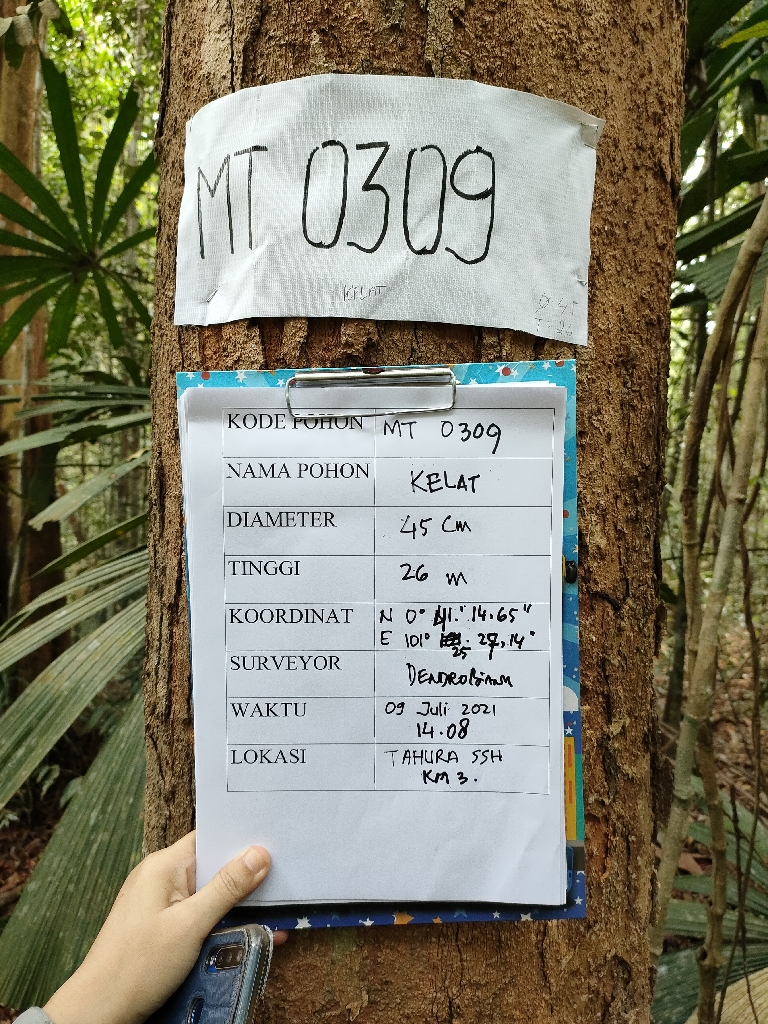 MT 0309
KELAT
KODE POHON MT 0309
NAMA POHON KELAT
DIAMETER 45 Cm
TINGGI 26 m
KOORDINAT N 0° 41." 14.65"
E 101° 25 . 27,14"
SURVEYOR
WAKTU 09 Juli 2021
14.08
LOKASI TAHURA SSH
KM 3.